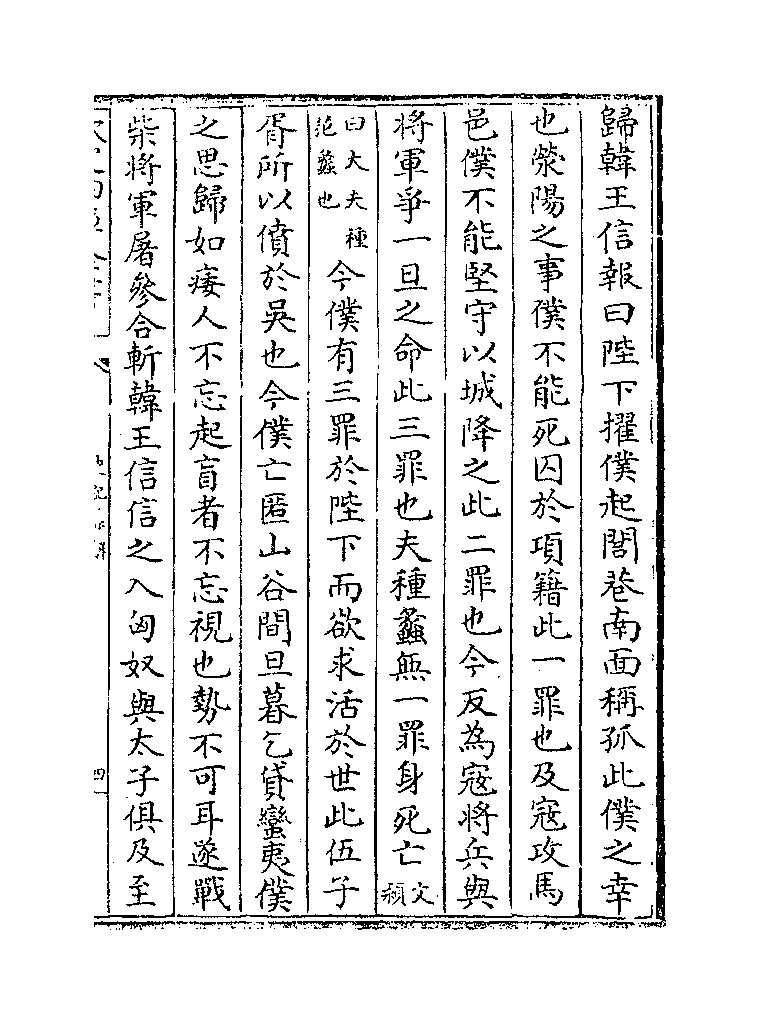 歸韓王信報曰陛下擢僕起閭巷南面稱孤此僕之幸
也滎陽之事僕不能死囚於項籍此一罪也及寇攻馬
邑僕不能堅守以城降之此二罪也今反為寇將兵與
將軍爭一旦之命此三罪也夫種蠡無一罪身死亡文穎
曰大夫種范蠡也今僕有三罪於陛下而欲求活於世此伍子
胥所以僨於吳也今僕亡匿山谷間旦暮乞貸蠻夷僕
之思歸如痿人不忘起盲者不忘視也勢不可耳遂戰
柴將軍屠參合斬韓王信信之入匈奴與太子俱及至
四